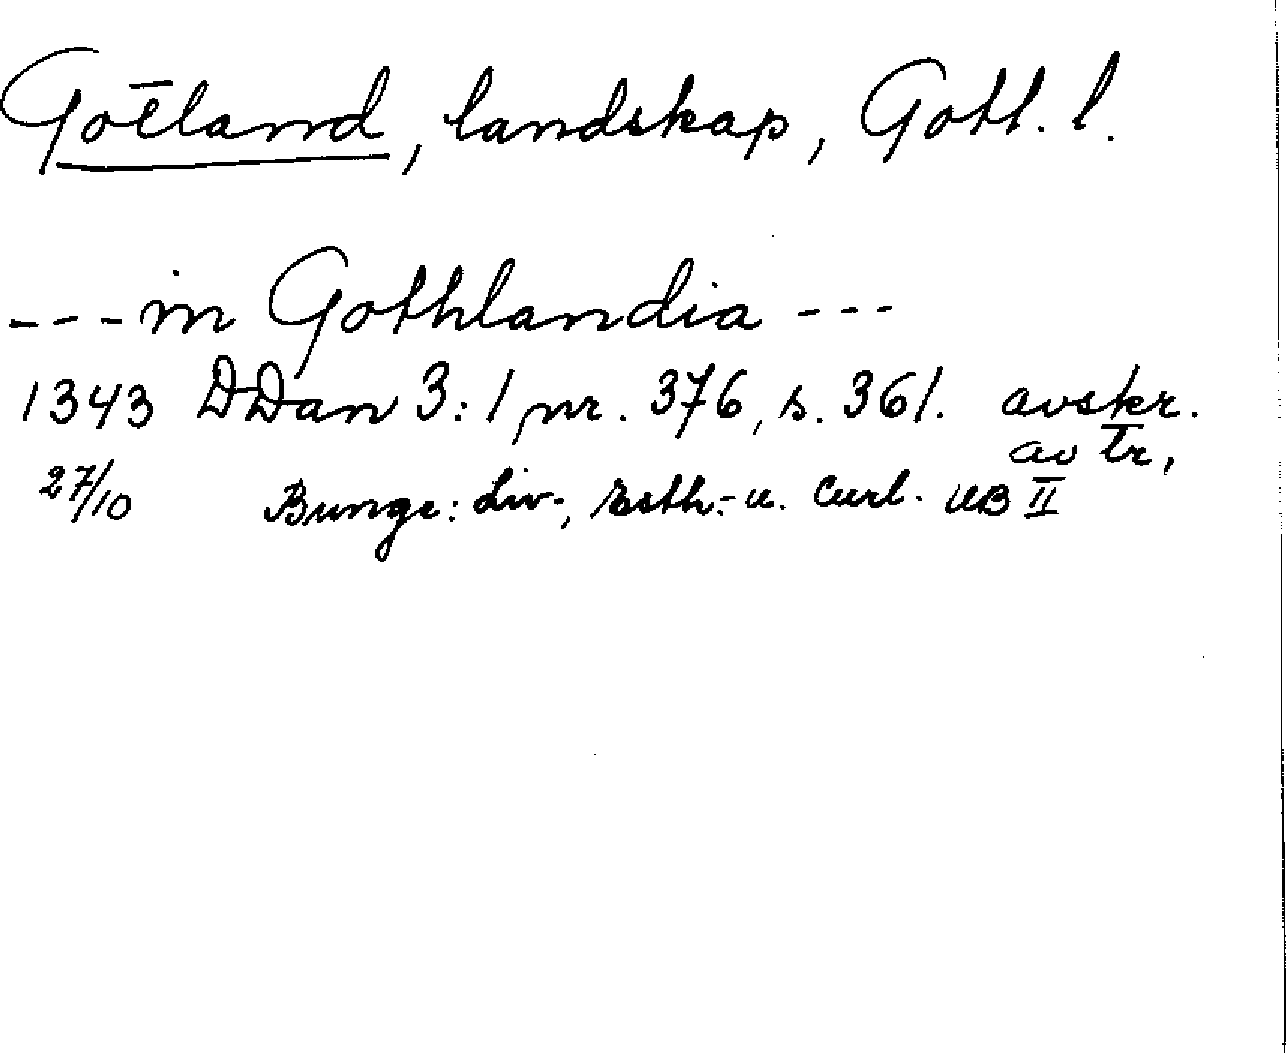 Gotland, landskap, Gotl. l.
--- in Gothlandia ---
1343 DDan 3:1 nr. 376, s. 361. avskr.
av tr,
27/10 Bunge: Liv-, Esth.- u. Curl. UB II